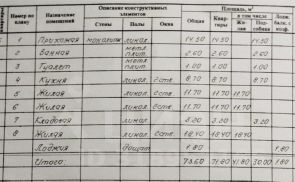 Номер по плану Назначение помещения Описание конструктивных элементов Площадь, м²
Стены Полы Окна Общая Квартиры в том числе
Жилая Подсобная
1 Прихожая монолит линол. 14.50 14.50 14.50
2 Ванная метл. плит. 2.60 2.60 2.60
3 Туалет метл. плит. 1.00 1.00 1.00
4 Кухня линол. 8.70 8.70 8.70
5 Жилая линол. 11.70 11.70 11.70
6 Жилая линол. 11.70 11.70 11.70
7 Кладовая линол. 3.20 3.20 3.20
8 Жилая линол. 18.40 18.40 18.40
Лоджия дощат. 1.80 1.80
Итого: 73.60 71.80 41.80 30.00 1.80